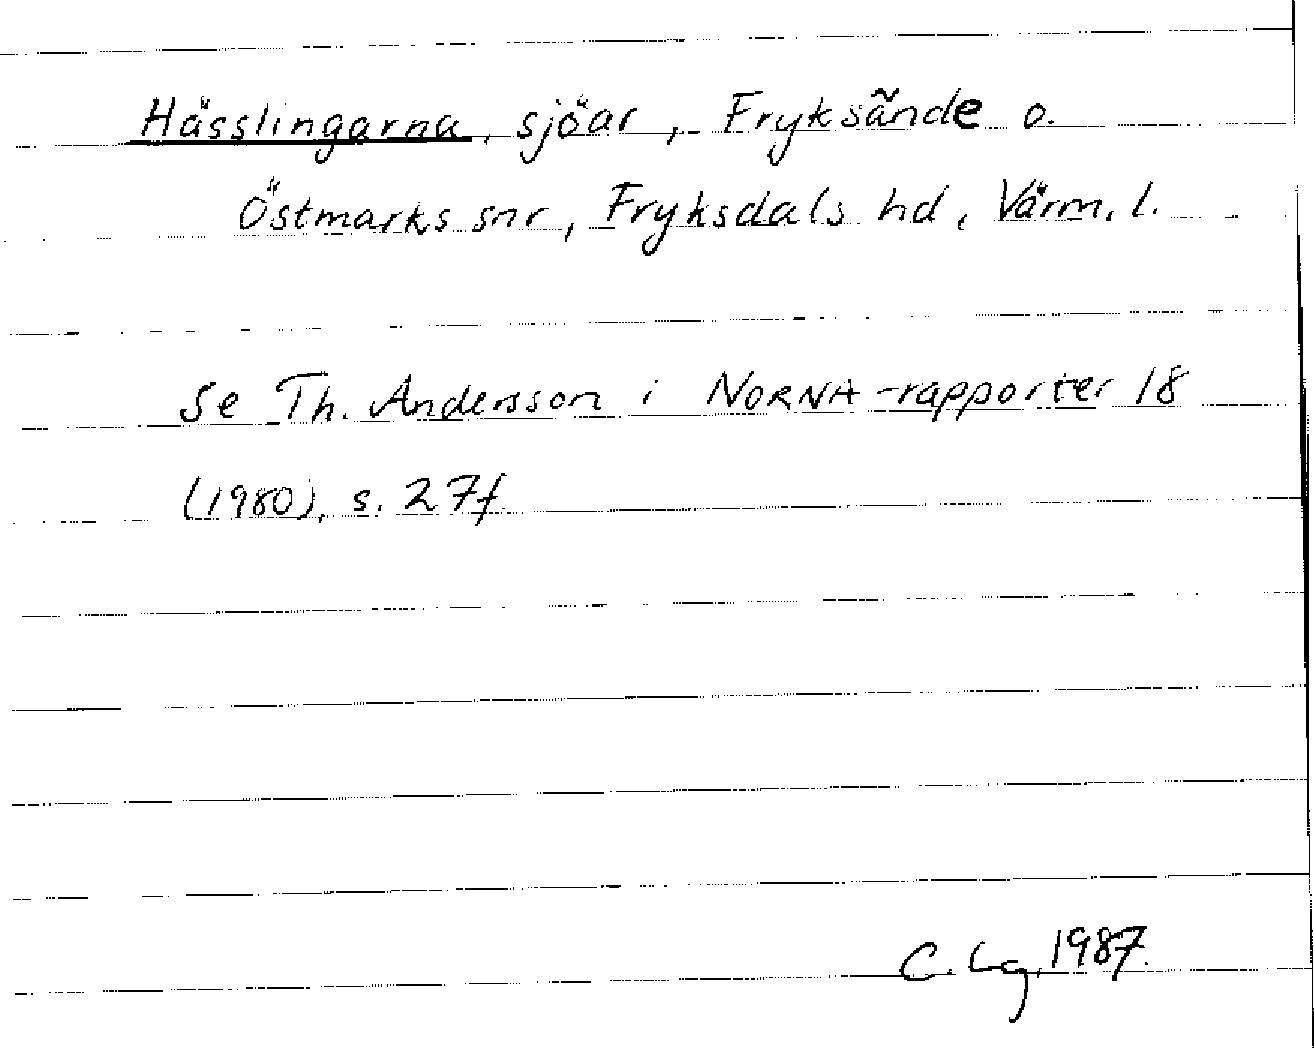 Hässlingarna, sjöar, Fryksände o.
Östmarks snr, Fryksdals hd, Värm. l.
Se Th. Andersson i NORNA-rapporter 18
(1980), s. 27f
C. Lg, 1987.